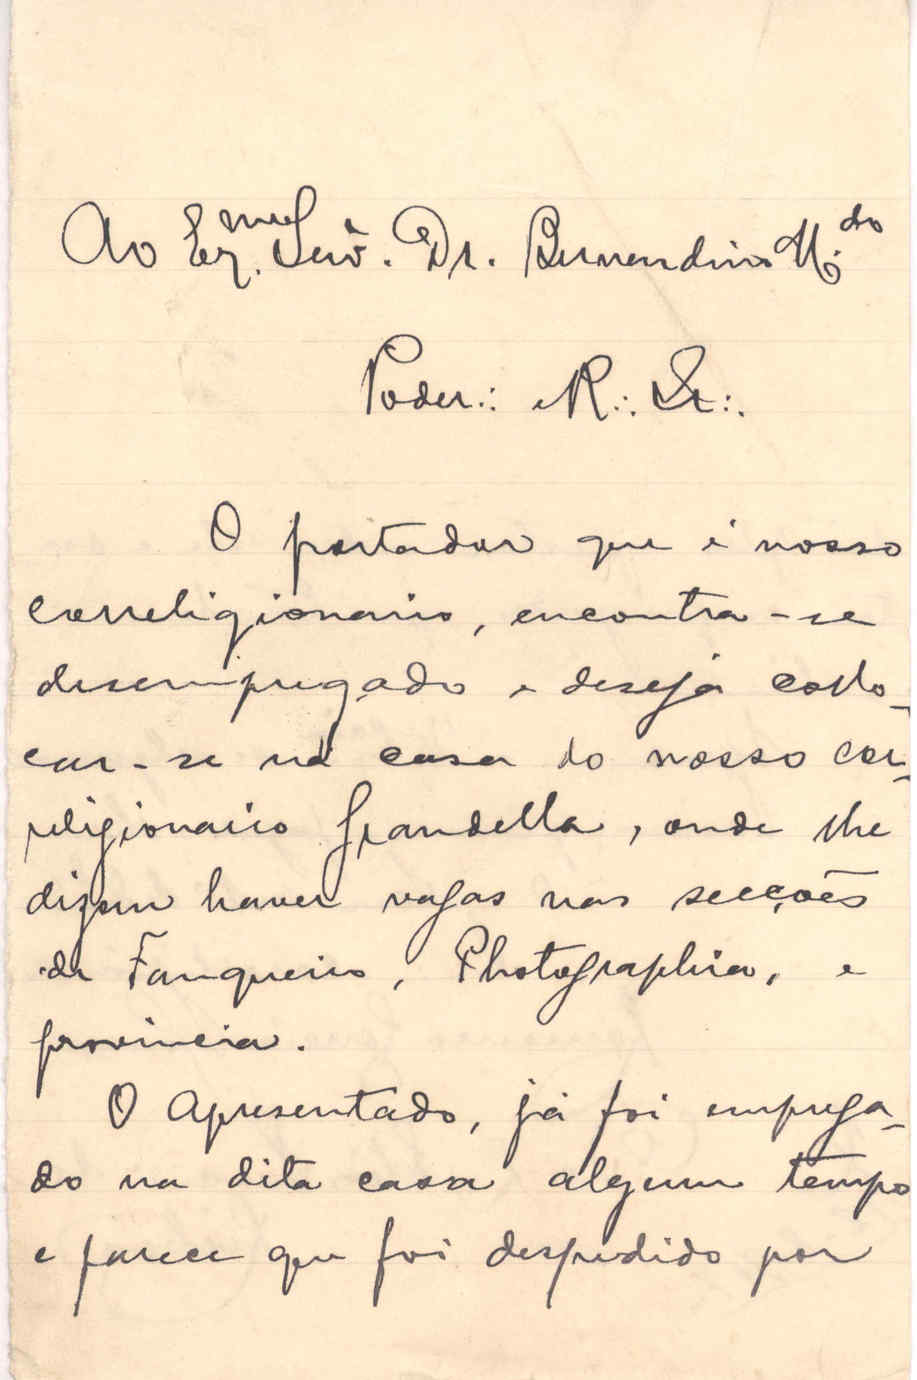 Ao Ex.mo Senr. Dr. Bernardino M.do
Poder∴ e R∴ Ir∴
O portador que é nosso
correligionario, encontra-se
desempregado e deseja collo-
car-se na casa do nosso cor-
religionario Grandella, onde lhe
dizem haver vagas nas secções
de Fanqueiro, Photographia, e
provincia.
O Apresentado, já foi emprega-
do na dita casa algum tempo
e parece que foi despedido por